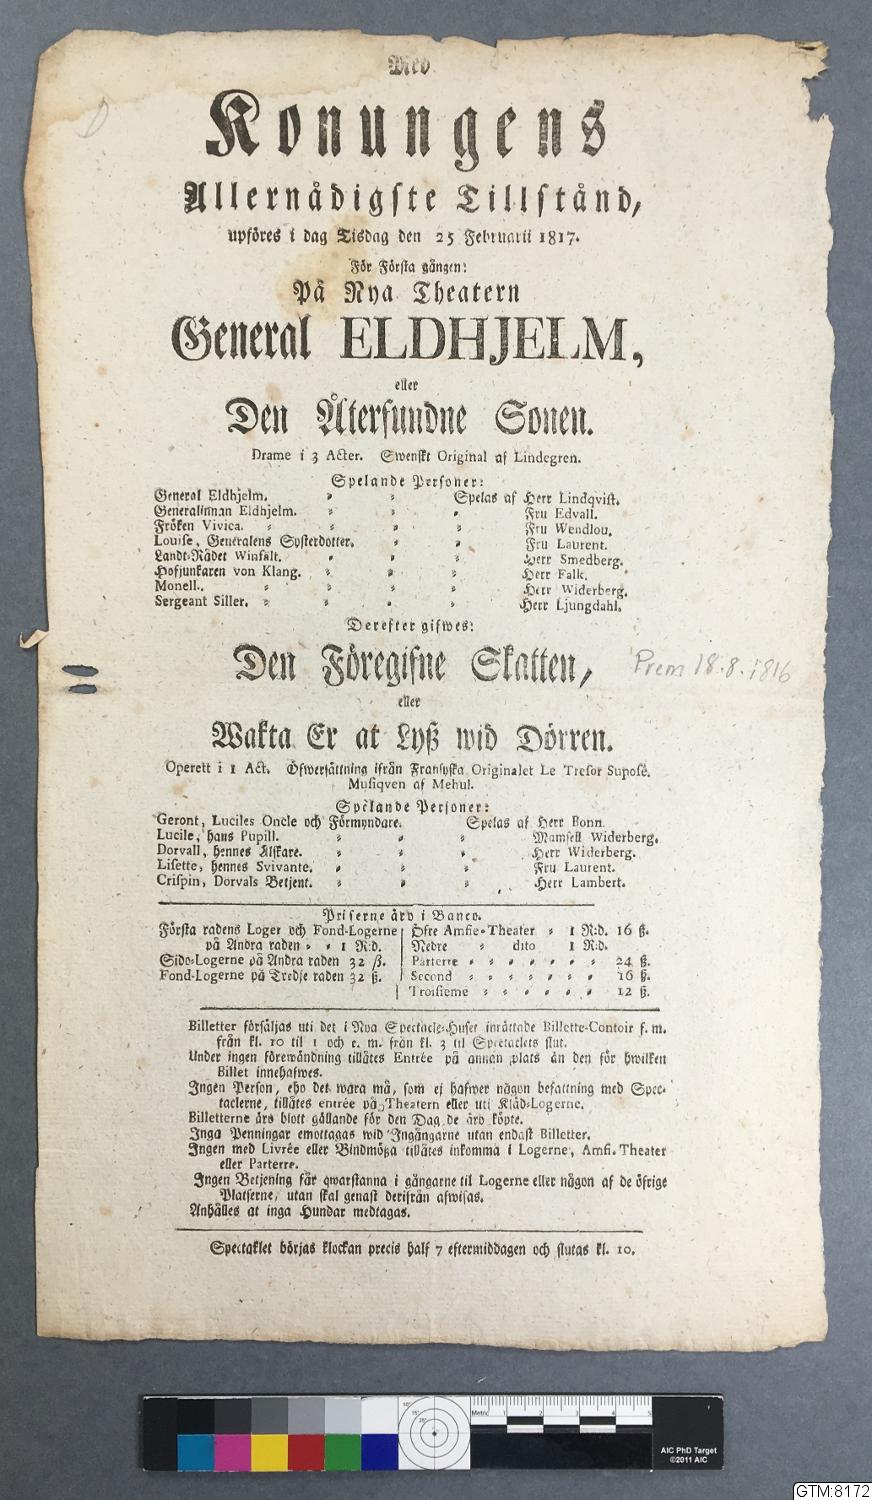 Med
Konungens
Allernådigste Tillstånd,
upföres i dag Tisdag den 25 Februarii 1817.
För Första gången:
På Nya Theatern
General ELDHJELM,
eller
Den Återfundne Sonen.
Drame i 3 Acter. Swenskt Original af Lindegren.
Spelande Personer:
General Eldhjelm. Spelas af Herr Lindqvist.
Generalinnan Eldhjelm. Fru Edvall.
Fröken Vivica. Fru Wendlou.
Louise, Generalens Systerdotter. Fru Laurent.
Landt-Rådet Winfält. Herr Smedberg.
Hofjunkaren von Klang. Herr Falk.
Monell. Herr Widerberg.
Sergeant Siller. Herr Ljungdahl.
Derefter gifwes:
Den Föregifne Skatten,
Prem 18.8.1816
eller
Wakta Er at Lyß wid Dörren.
Operett i 1 Act. Öfwersättning ifrån Fransyska Originalet Le Tresor Suposé.
Musiqven af Mehul.
Spelande Personer:
Geront, Luciles Oncle och Förmyndare. Spelas af Herr Bonn.
Lucile, hans Pupill. Mamsell Widerberg.
Dorvall, hennes Älskare. Herr Widerberg.
Lisette, hennes Svivante. Fru Laurent.
Crispin, Dorvals Betjent. Herr Lambert.
Priserne äro i Banco.
Första radens Loger och Fond-Logerne
på Andra raden 1 R:d.
Sido-Logerne på Andra raden 32 ß.
Fond-Logerne på Tredje raden 32 ß.
Öfre Amfie-Theater 1 R:d. 16 ß.
Nedre dito 1 R:d.
Parterre 24 ß.
Second 16 ß.
Troisieme 12 ß.
Billetter försäljas uti det i Nya Spectacle-Huset inrättade Billette-Contoir f. m.
från kl. 10 til 1 och e. m. från kl. 3 til Spectaclets slut.
Under ingen förewändning tillåtes Entrée på annan plats än den för hwilken
Billet innehafwes.
Ingen Person, eho det wara må, som ej hafwer någon befattning med Spec-
taclerne, tillåtes entrée på Theatern eller uti Kläd-Logerne.
Billetterne äro blott gällande för den Dag de äro köpte.
Inga Penningar emottagas wid Ingångarne utan endast Billetter.
Ingen med Livrée eller Bindmößa tillåtes inkomma i Logerne, Amfi-Theater
eller Parterre.
Ingen Betjening får qwarstanna i gångarne til Logerne eller någon af de öfrige
Platserne, utan skal genast derifrån afwisas.
Anhålles at inga Hundar medtagas.
Spectaklet börjas klockan precis half 7 eftermiddagen och slutas kl. 10.
D
Metric 1 2 3 4 5
AIC PhD Target
©2011 AIC
GTM:8172